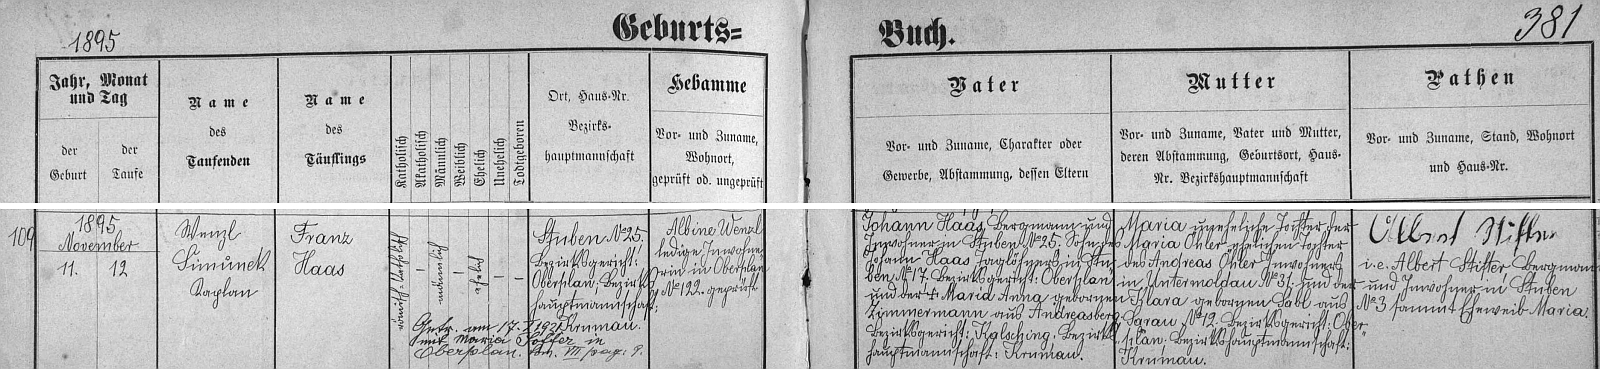 1895
Geburts=
Buch.
381
Jahr, Monat
und Tag
der
Geburt
der
Taufe
Name
des
Taufenden
Name
des
Täuflings
Katholisch
Akatholisch
Männlich
Weiblich
Ehelich
Unehelich
Todtgeboren
Ort, Haus-Nr.
Bezirks-
hauptmannschaft
Hebamme
Vor- und Zuname,
Wohnort,
geprüft od. ungeprüft
Vater
Vor- und Zuname, Charakter oder
Gewerbe, Abstammung, dessen Eltern
Mutter
Vor- und Zuname, Vater und Mutter,
deren Abstammung, Geburtsort, Haus-
Nr. Bezirkshauptmannschaft
Pathen
Vor- und Zuname, Stand, Wohnort
und Haus-Nr.
109
1895
November
11. 12
Wenzl
Simunek
Kaplan
Franz
Haas
römisch-katholisch
männlich
ehelich
Stuben No 25.
Bezirksgericht:
Oberplan; Bezirks
hauptmannschaft;
Krumau.
Getr. am 17. 1921
mit Maria in
Oberplan. pag: 9.
Albine Wenzl
ledige Inwohne-
rin in Oberplan
No 122. geprüft
Johann Haas, Bergmann und
Inwohner in Stuben No 25. Sohn des
Johann Haas Taglöhners in Stu-
ben No 17. Bezirksgericht: Oberplan
und der Maria Anna gebornen
Zimmermann aus Andreasberg
Bezirksgericht: Kalsching. Bezirks
hauptmannschaft: Krumau.
Maria uneheliche Tochter der
Maria Öhler ehelichen Tochter
des Andreas Öhler Inwohners
in Untermoldau No 31. und der
Klara gebornen Gabl aus
Sarau No 12. Bezirksgericht: Ober-
plan. Bezirkshauptmannschaft:
Krumau.
Albert Stifter
i. e. Albert Stifter Bergmann
und Inwohner in Stuben
No 3 sammt Eheweib Maria.